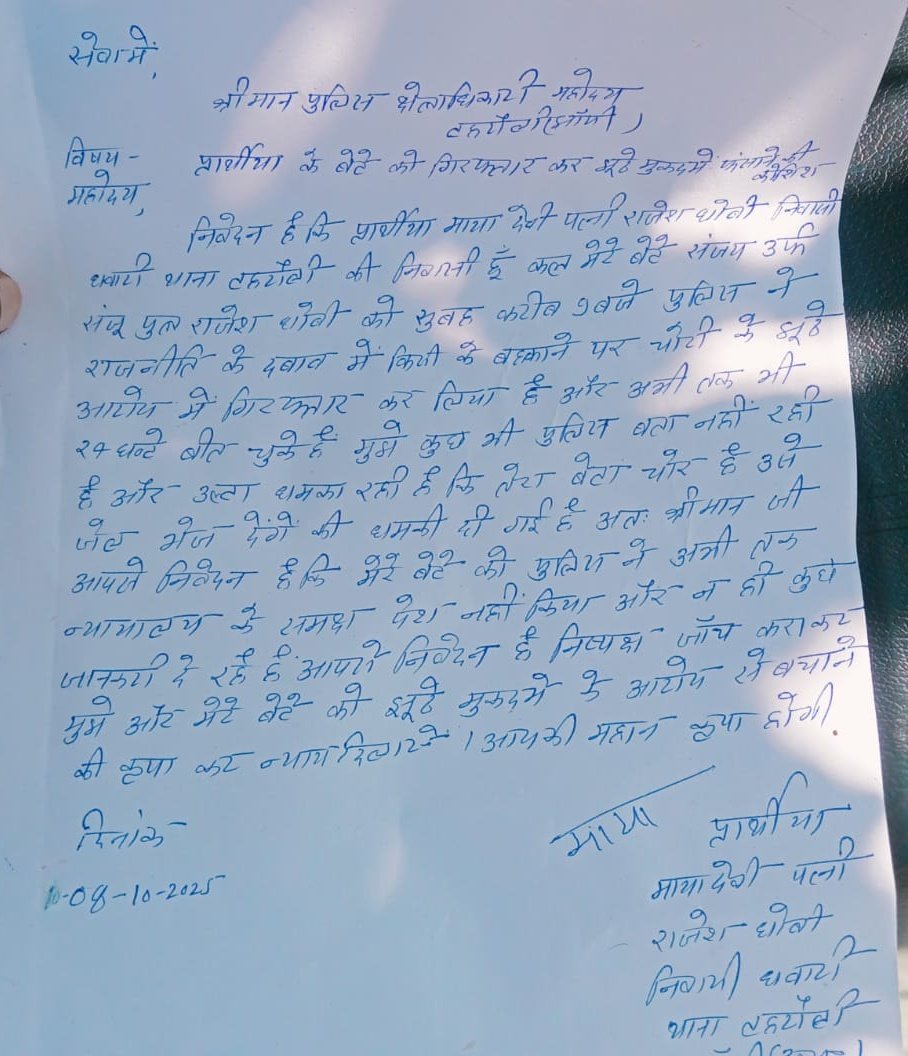 सेवा में,
श्रीमान पुलिस क्षेत्राधिकारी महोदय
टहरौली (झाँसी)
विषय - प्रार्थीया के बेटे को गिरफ्तार कर झूठे मुकदमें फंसाने की कोशिश
महोदय,
निवेदन है कि प्रार्थीया माया देवी पत्नी राजेश धोबी निवासी
धवारी थाना टहरौली की निवासी हूँ कल मेरे बेटे संजय उर्फ
संजू पुत्र राजेश धोबी को सुबह करीब 9 बजे पुलिस ने
राजनीति के दबाव में किसी के बहकाने पर चोरी के झूठे
आरोप में गिरफ्तार कर लिया है और अभी तक भी
२४ घन्टे बीत चुके हैं मुझे कुछ भी पुलिस बता नहीं रही
है और उल्टा धमका रही है कि तेरा बेटा चोर है उसे
जेल भेज देंगें की धमकी दी गई है अतः श्रीमान जी
आपसे निवेदन है कि मेरे बेटे को पुलिस ने अभी तक
न्यायालय के समक्ष पेश नहीं किया और न ही कुछ
जानकारी दे रहे हैं आपसे निवेदन है निष्पक्ष जाँच कराकर
मुझे और मेरे बेटे को झूठे मुकदमे के आरोप से बचाने
की कृपा कर न्याय दिलाये । आपकी महान कृपा होगी
दिनांक
08-10-2025
माया
प्रार्थीया
माया देवी पत्नी
राजेश धोबी
निवासी धवारी
थाना टहरौली